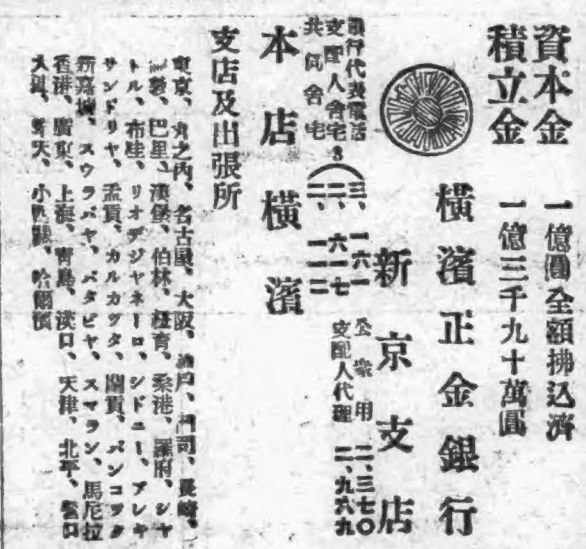 資本金 一億圓全額拂込濟
積立金 一億三千九十萬圓
橫濱正金銀行
新京支店
銀行代表電話 三、一六一
支配人舍宅 3 二、六一七
共同舍宅 二、一一二
公衆用 二、三七〇
支配人代理 二、九六九
本店 橫濱
支店及出張所
東京、丸之内、名古屋、大阪、神戶、門司、長崎、
倫敦、巴里、漢堡、伯林、紐育、桑港、羅府、シヤ
トル、布哇、リオデジャネーロ、シドニー、アレキ
サンドリヤ、孟買、カルカツタ、蘭貢、バンコツク
新嘉坡、スウラバヤ、バタビヤ、スマラン、馬尼拉
香港、廣東、上海、靑島、漢口、天津、北平、營口
大連、奉天、小西關、哈爾濱